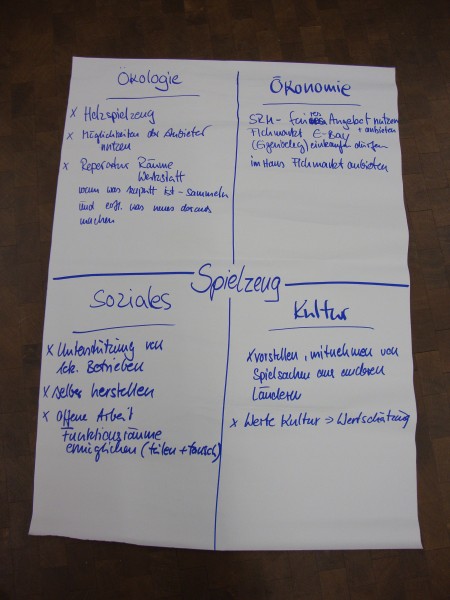 Ökologie
x Holzspielzeug
x Möglichkeiten der Anbieter
nutzen
x Reperatur Räume
Werkstatt
wenn was kaputt ist - sammeln
und evtl. was neues daraus
machen
Ökonomie
Angebot nutzen
Flohmarkt E-Bay + anbieten
(Eigenbeleg) einkaufen dürfen
im Haus Flohmarkt anbieten
Spielzeug
Soziales
x Unterstützung von
lok. Betrieben
x selber herstellen
x offene Arbeit
Funktionsräume
ermöglichen (teilen + tausch)
Kultur
x vorstellen, mitnehmen von
Spielsachen aus anderen
Ländern
x Werte Kultur → Wertschätzung